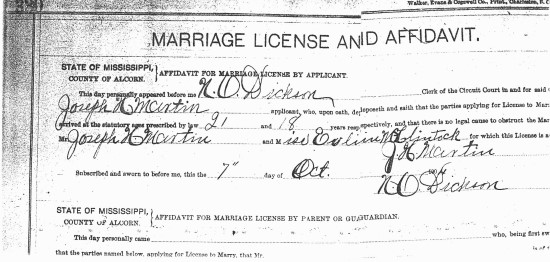 Walker, Evans & Cogswell Co., Print., Charleston, S. C.
MARRIAGE LICENSE AND AFFIDAVIT.
STATE OF MISSISSIPPI, COUNTY OF ALCORN. } AFFIDAVIT FOR MARRIAGE LICENSE BY APPLICANT.
This day personally appeared before me N. O. Dickson Clerk of the Circuit Court in and for said
Joseph H Martin applicant, who, upon oath, deposeth and saith that the parties applying for License to Mar
arrived at the statutory ages prescribed by law 21 and 18 years respectively, and that there is no legal cause to obstruct the Mar
Mr. Joseph H Martin and Miss McClintock for which this License is a
J H Martin
Subscribed and sworn to before me, this the 7" day of Oct.
N O Dickson
STATE OF MISSISSIPPI, COUNTY OF ALCORN. } AFFIDAVIT FOR MARRIAGE LICENSE BY PARENT OR GUARDIAN.
This day personally came who, being first
that the parties named below, applying for License to Marry, that Mr.